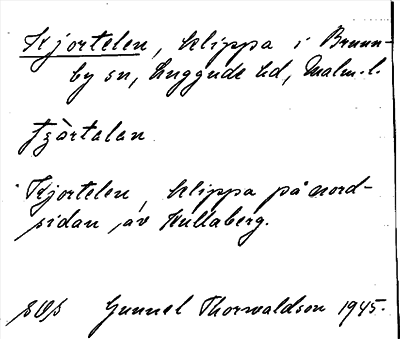 Kjortelen, klippa i Brunn-
by sn, Luggude hd, Malm. l.
Kjortelen, klippa på nord-
sidan av Kullaberg.
Gunnel Thorwaldson 1945.